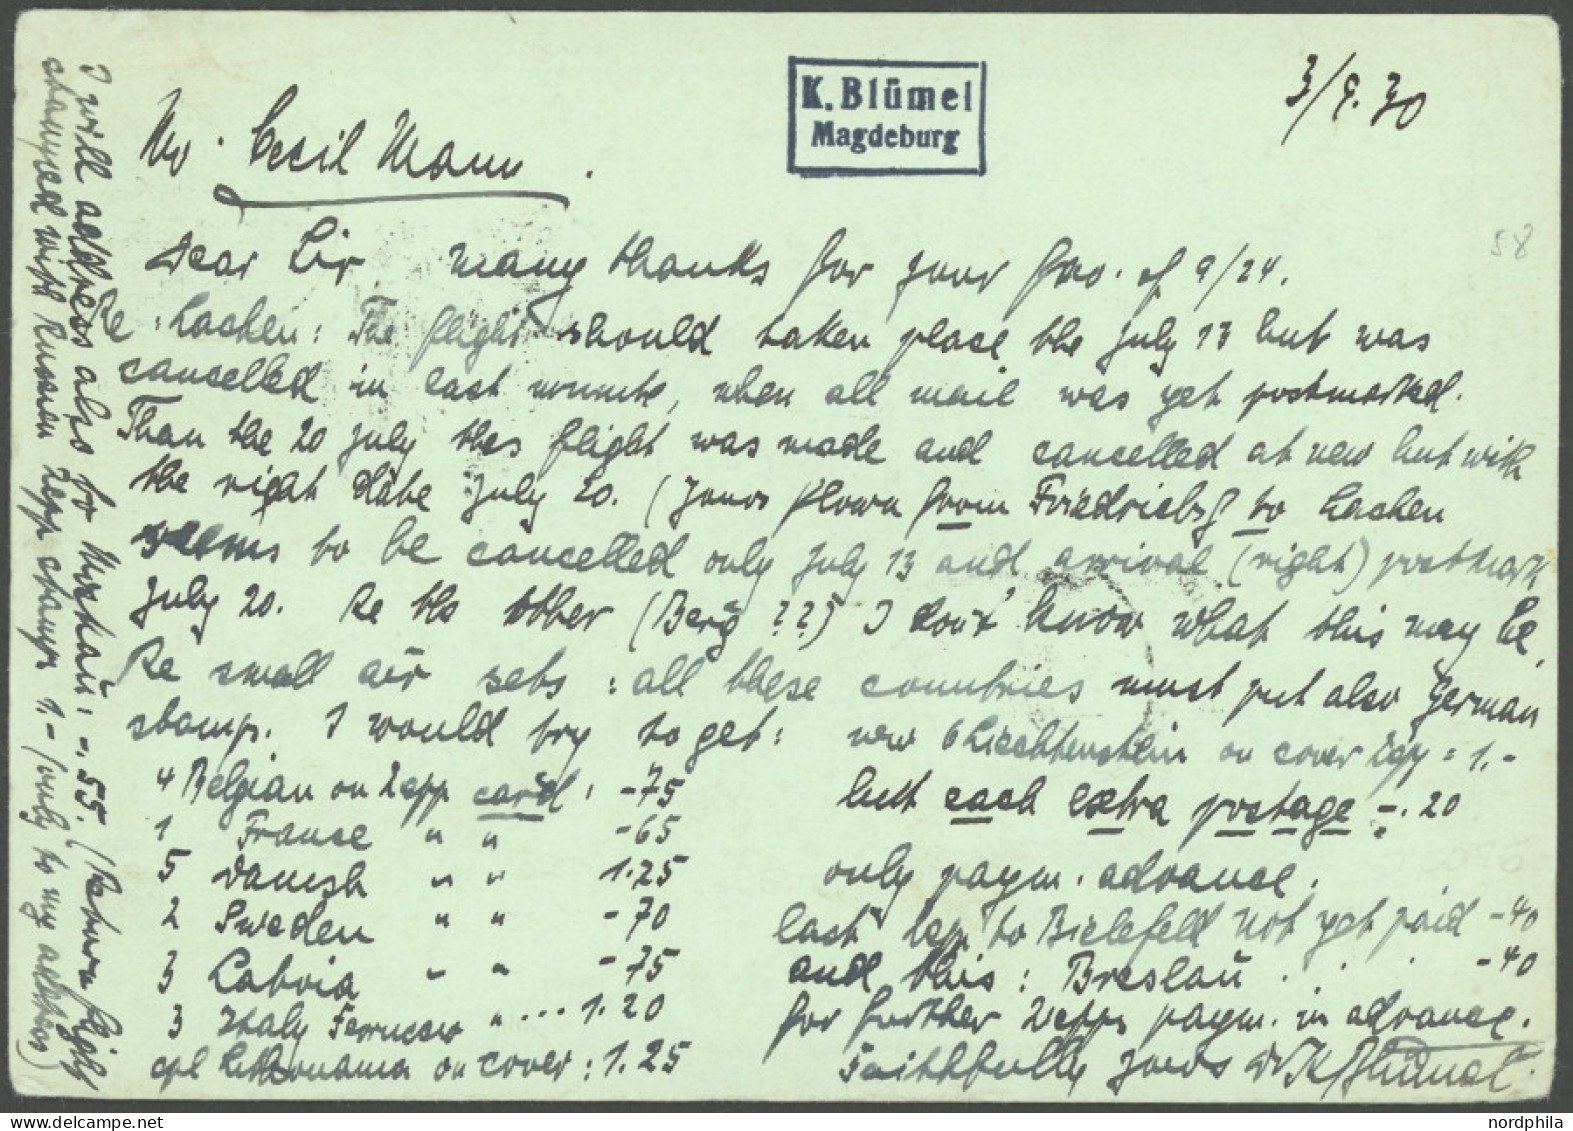 K. Blümel
Magdeburg
3/9.30
Mr. Cecil Mann.
Dear Sir many thanks for your fav. of 9/24.
Re: Lachen: The flight should taken place the July 13 but was
cancelled in last minute, when all mail was yet postmarked.
Than the 20 July this flight was made and cancelled at new but with
the right date July 20. (Yours flown from Friedrichsf to Lachen
seems to be cancelled only July 13 and arrival (right) postmark
July 20. Re the other (Berg ??) I don't know what this may be.
Re small air sets: all these countries must put also German
stamp. I would try to get:
4 Belgian on Zepp card: -75
1 France " " -65
5 Danish " " 1.25
2 Sweden " " -70
3 Latvia " " -75
3 Italy Ferrucco " ... 1.20
cpl Lithouania on cover: 1.25
new 6 Liechtenstein on cover = 1.-
but each extra postage -.20
only paym. advance.
last Zepp to Bielefeld not yet paid -40
and this: Breslau . . . -40
for further Zepps paym. in advance.
Faithfully yours K Blümel
I will address also to Moskau: -.55. (Return flight
stamped with Russian Zepp stamps 1- (only to my address)
58